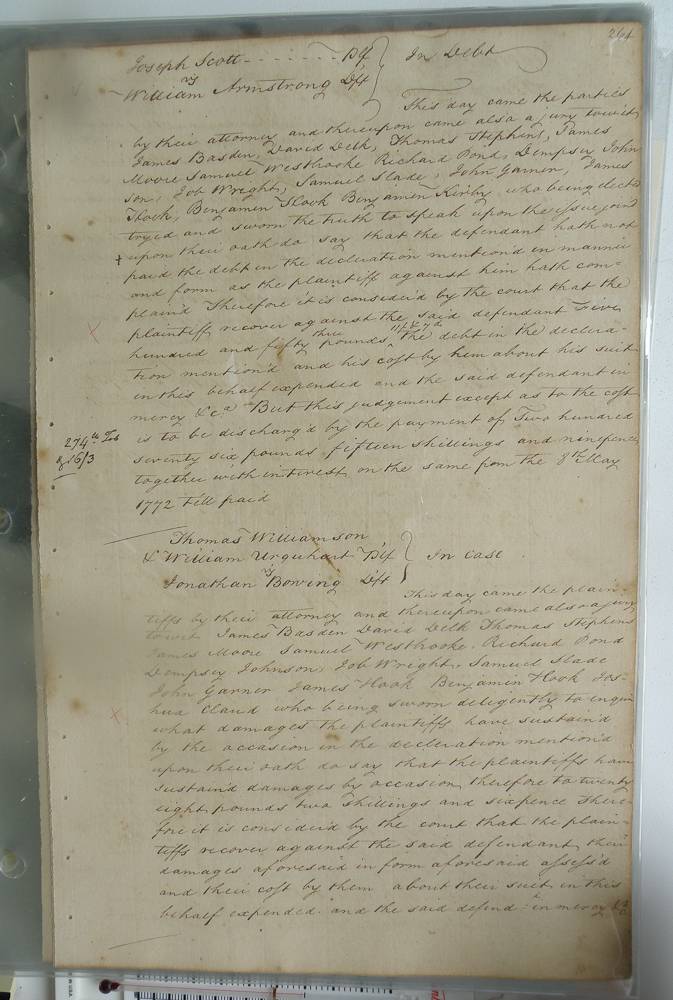 264
Joseph Scott - - - - - - - Plf } In Debt
vs
William Armstrong Dft
This day came the parties
by their attorney and thereupon came also a jury towit
James Basden, David Delk, Thomas Stephens, James
Moore Samuel Westbrooke Richard Pond, Dempsey John
son, Job Wright, Samuel Slade, John Garner, James
Hook, Benjamin Hook Benjamin Kirby who being elected
tryed and sworn the truth to speak upon the issue joind
upon their oath do say that the defendant hath not
paid the debt in the declaration mention'd in manner
and form as the plaintiff against him hath com-
plain'd Therefore it is consider'd by the court that the
plaintiff recover against the said defendant Five
hundred and fifty three pounds the debt in the declara-
tion mention'd and his cost by him about his suit
in this behalf expended and the said defendant in
mercy &ca But this judgement except as to the cost
is to be discharg'd by the payment of Two hundred
274th Tob
& 16/3
seventy six pounds fifteen shillings and ninepence
together with interest on the same from the 8th May
1772 till paid
Thomas Williamson
& William Urquhart Plf } In Case
vs
Jonathan Bowing Dft
This day came the plain-
tiffs by their attorney and thereupon came also a jury
towit James Basden David Delk Thomas Stephens
James Moore Samuel Westbrooke, Richard Pond
Dempsey Johnson, Job Wright, Samuel Slade
John Garner James Hook Benjamin Hook Jos-
hua Claud who being sworn deligently to enquire
what damages the plaintiffs have sustain'd
by the occasion in the declaration mention'd
upon their oath do say that the plaintiffs have
sustain'd damages by occasion therefore to twenty
eight pounds two shillings and sixpence There-
fore it is consider'd by the court that the plain-
tiffs recover against the said defendant their
damages aforesaid in form aforesaid assess'd
and their cost by them about their suit in this
behalf expended and the said defendt in mercy &ca